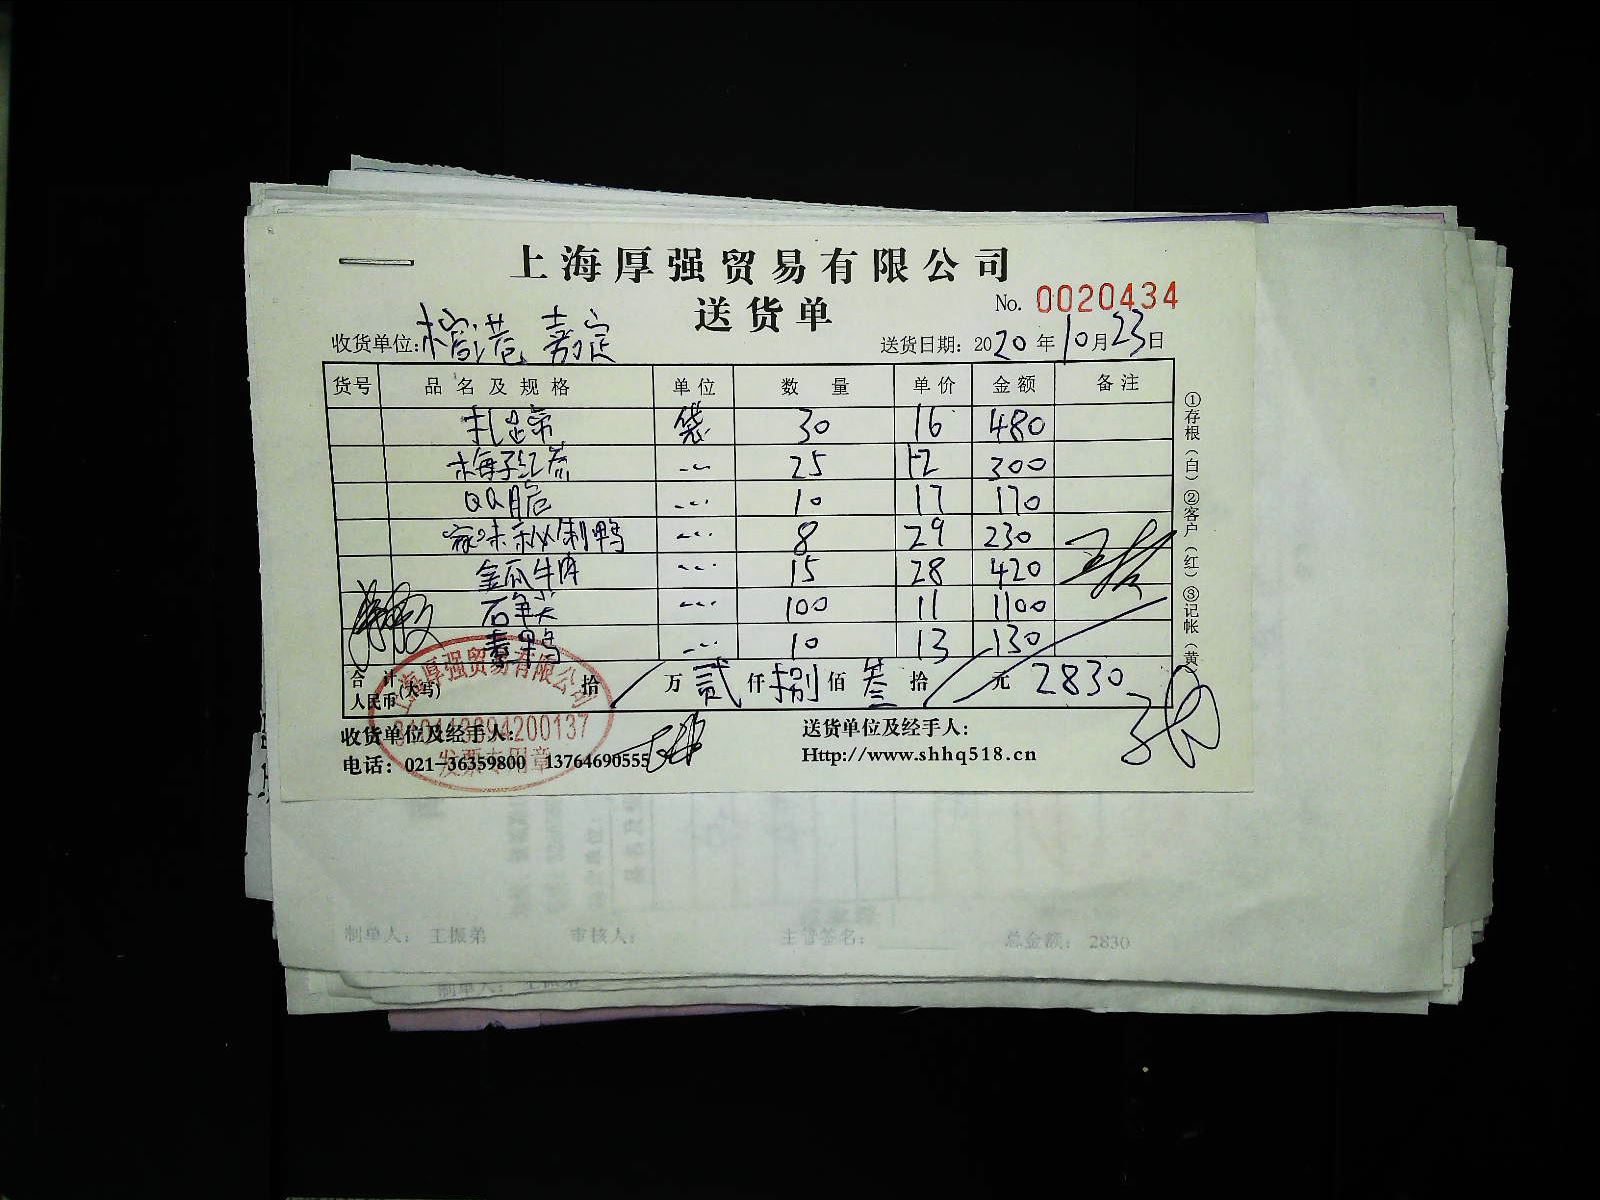 上海厚强贸易有限公司
送货单
No. 0020434
收货单位: 嘉定
送货日期: 2020年10月23日
货号 品名及规格 单位 数量 单价 金额 备注
扎蹄 袋 30 16 480
梅子红参 25 12 300
QQ脆 10 17 170
家味秘制鸭 8 29 230
金瓜牛肉 15 28 420
石笋尖 100 11 1100
素鸭 10 13 130
合计人民币(大写) 拾 万 贰 仟 捌 佰 叁 拾 元 2830
上海厚强贸易有限公司
310113694200137
发票专用章
收货单位及经手人:
送货单位及经手人:
电话: 021-36359800 13764690555
Http://www.shhq518.cn
①存根(白)②客户(红)③记帐(黄)
制单人: 王振弟 审核人: 主管签名: 总金额: 2830
制单人: 王振弟